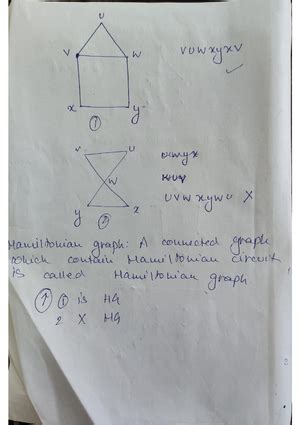 u
v
w
vuwxyxv
x
y
①
v
u
w
uwyx
y
x
uvwxywu X
②
Hamiltonian graph: A connected graph
which contain Hamiltonian circuit
is called Hamiltonian graph
① is HG
2 X HG